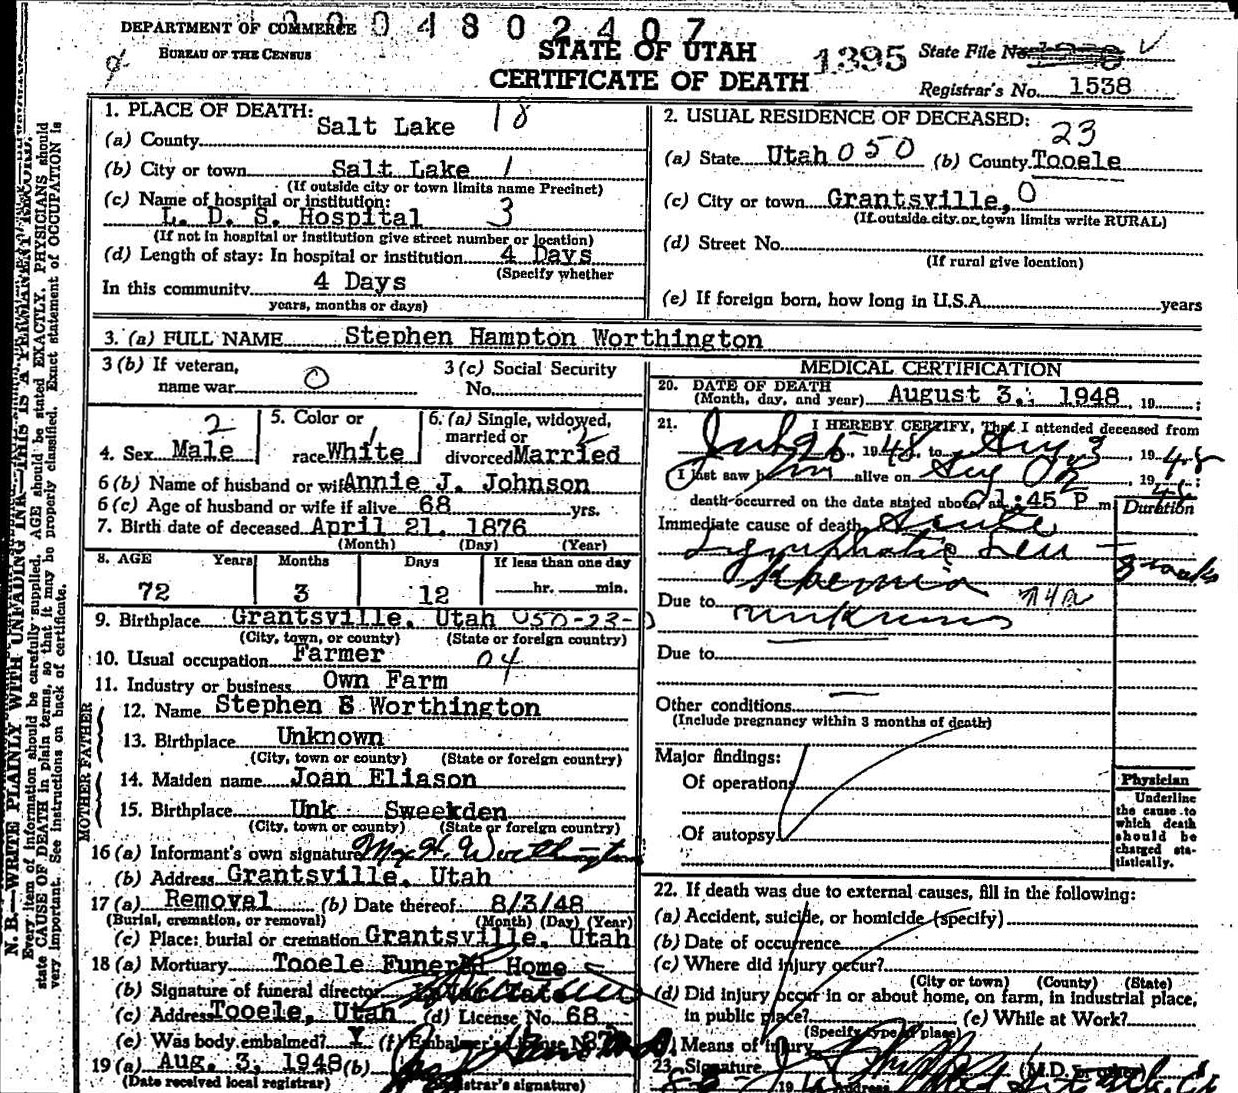 0004802407
DEPARTMENT OF COMMERCE
BUREAU OF THE CENSUS
STATE OF UTAH
CERTIFICATE OF DEATH
1395
State File No.
Registrar's No. 1538
N. B.—WRITE PLAINLY WITH UNFADING INK—THIS IS A PERMANENT RECORD.
Every item of information should be carefully supplied. AGE should be stated EXACTLY. PHYSICIANS should
state CAUSE OF DEATH in plain terms, so that it may be properly classified. Exact statement of OCCUPATION is
very important. See instructions on back of certificate.
1. PLACE OF DEATH: 18
(a) County Salt Lake
(b) City or town Salt Lake 1
(If outside city or town limits name Precinct)
(c) Name of hospital or institution:
L. D. S. Hospital 3
(If not in hospital or institution give street number or location)
(d) Length of stay: In hospital or institution 4 Days
(Specify whether
In this community 4 Days
years, months or days)
2. USUAL RESIDENCE OF DECEASED:
23
(a) State Utah 050 (b) County Tooele
(c) City or town Grantsville, 0
(If outside city or town limits write RURAL)
(d) Street No.
(If rural give location)
(e) If foreign born, how long in U.S.A. years
3. (a) FULL NAME Stephen Hampton Worthington
3 (b) If veteran,
name war 0
3 (c) Social Security
No.
2
4. Sex Male
5. Color or
race White 1
6. (a) Single, widowed,
married or 2
divorced Married
6 (b) Name of husband or wife Annie J. Johnson
6 (c) Age of husband or wife if alive 68 yrs.
7. Birth date of deceased April 21, 1876
(Month) (Day) (Year)
8. AGE Years Months Days If less than one day
72 3 12 hr. min.
9. Birthplace Grantsville, Utah 050-23-0
(City, town, or county) (State or foreign country)
10. Usual occupation Farmer 04
11. Industry or business Own Farm
FATHER
12. Name Stephen S Worthington
13. Birthplace Unknown
(City, town or county) (State or foreign country)
MOTHER
14. Maiden name Joan Eliason
15. Birthplace Unk Sweekden
(City, town or county) (State or foreign country)
16 (a) Informant's own signature Max H. Worthington
(b) Address Grantsville, Utah
17 (a) Removal (b) Date thereof 8/3/48
(Burial, cremation, or removal) (Month) (Day) (Year)
(c) Place: burial or cremation Grantsville, Utah
18 (a) Mortuary Tooele Funeral Home
(b) Signature of funeral director
(c) Address Tooele, Utah (d) License No. 68
(e) Was body embalmed? Y (f) Embalmer's License No.
19 (a) Aug. 3, 1948 (b)
(Date received local registrar) Registrar's signature)
MEDICAL CERTIFICATION
20. DATE OF DEATH
(Month, day, and year) August 3, 1948, 19 ;
21. I HEREBY CERTIFY, That I attended deceased from
July 25, 1948, to Aug 3, 1948
I last saw him alive on Aug 19 ;
death occurred on the date stated above, at 1:45 P m.
Duration
Immediate cause of death Acute
Lymphatic Leu-
kaemia 3 weeks
74a
Due to unknown
Due to
Other conditions
(Include pregnancy within 3 months of death)
Major findings:
Of operations
Of autopsy
Physician
Underline
the cause to
which death
should be
charged sta-
tistically.
22. If death was due to external causes, fill in the following:
(a) Accident, suicide, or homicide (specify)
(b) Date of occurrence
(c) Where did injury occur?
(City or town) (County) (State)
(d) Did injury occur in or about home, on farm, in industrial place,
in public place? (e) While at Work?
(Specify type of place)
Means of injury
23. Signature (M.D. or other)
19 Address